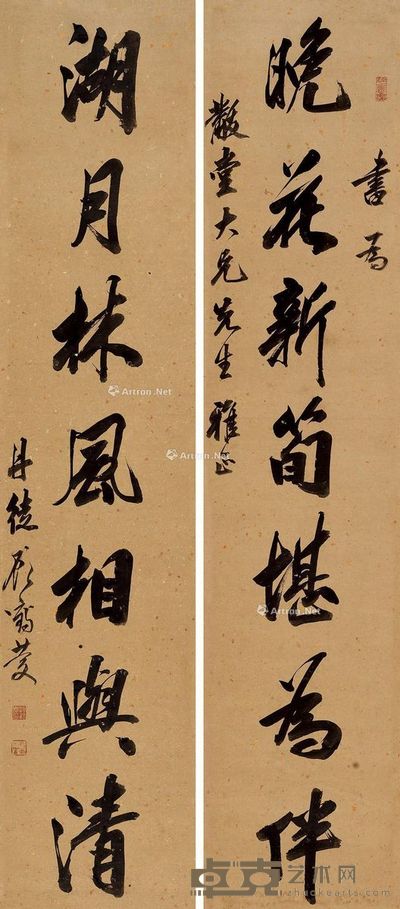 書為
晚花新筍堪為伴
散堂大兄先生雅正
湖月林風相與清
Artron.Net
Artron.Net
Artron.Net
卓克艺术网
zhuokearts.com